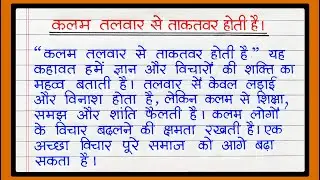 कलम तलवार से ताकतवर होती है।
“कलम तलवार से ताकतवर होती है” यह
कहावत हमें ज्ञान और विचारों की शक्ति का
महत्व बताती है। तलवार से केवल लड़ाई
और विनाश होता है, लेकिन कलम से शिक्षा,
समझ और शांति फैलती है। कलम लोगों
के विचार बदलने की क्षमता रखती है। एक
अच्छा विचार पूरे समाज को आगे बढ़ा
सकता है।